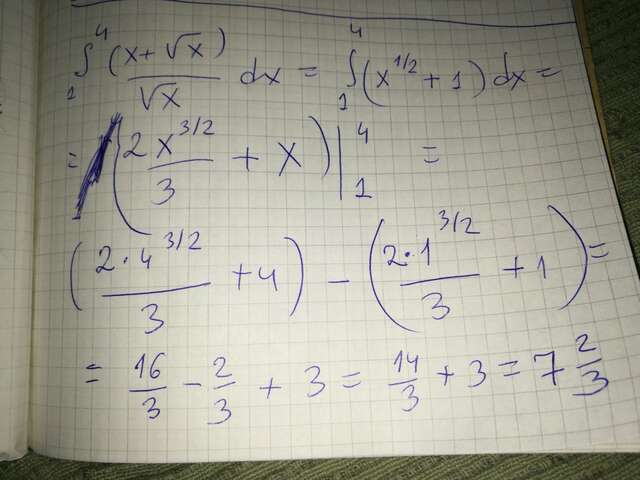 ∫₁⁴ (x+√x)/√x dx = ∫₁⁴ (x^{1/2} + 1) dx =
= (2 x^{3/2}/3 + x) |₁⁴ =
(2·4^{3/2}/3 + 4) − (2·1^{3/2}/3 + 1) =
= 16/3 − 2/3 + 3 = 14/3 + 3 = 7 2/3